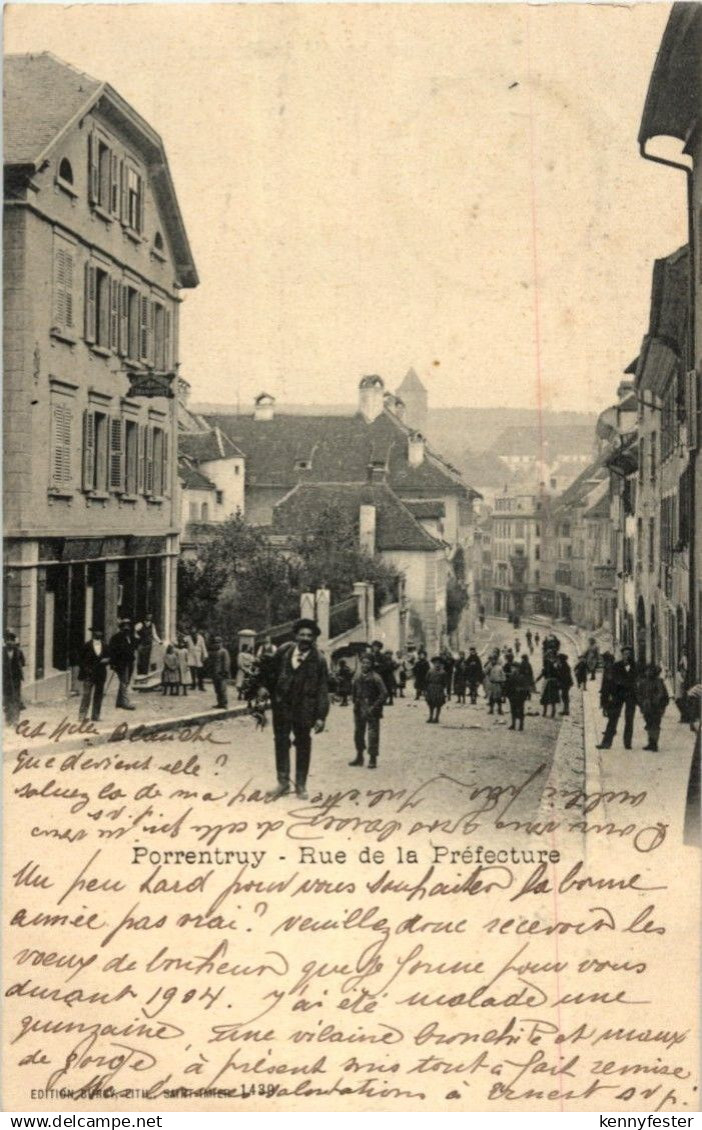 Blanche
Que devient-elle?
saluez la de ma part
s v p.
Porrentruy - Rue de la Préfecture
Un peu tard pour vous souhaiter la bonne
année pas vrai? veuillez donc recevoir les
voeux de bonheur que je forme pour vous
durant 1904. J'ai été malade une
quinzaine, une vilaine bronchite et maux
de gorge, à présent suis tout à fait remise
salutations à Ernest s v p.
EDITION BURGY, LITH., SAINT-IMIER 1439
kennyfester